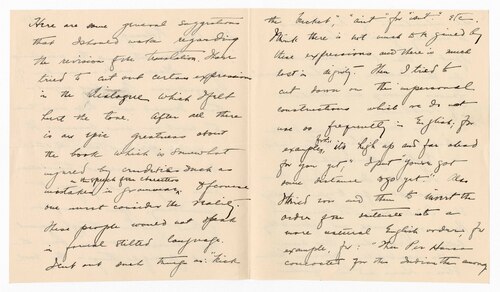 Here are some general suggestions
that I should make regarding
the revision of the translation. I have
tried to cut out certain expressions
in the dialogue which I felt
hurt the tone. After all there
is an epic greatness about
the book which is somewhat
injured by crudities such as
in the speech of the characters
mistakes in grammar. Of course
one must consider the reality,
these people would not speak
in formal stilted language.
I cut out such things as: "Kick
the bucket", "ain't" for "isn't" etc.
I think there is not much to be gained by
these expressions and there is much
lost in dignity. Then I tried to
cut down on the impersonal
constructions which we do not
use so frequently in English, for
example, "it's high up and far ahead
for you yet", I put "you've got
some distance to go yet." Also
I tried now and then to invert the
order of the sentences into a
more natural English order; for
example, for: "Then Per Hansa
concocted for the Indian then among